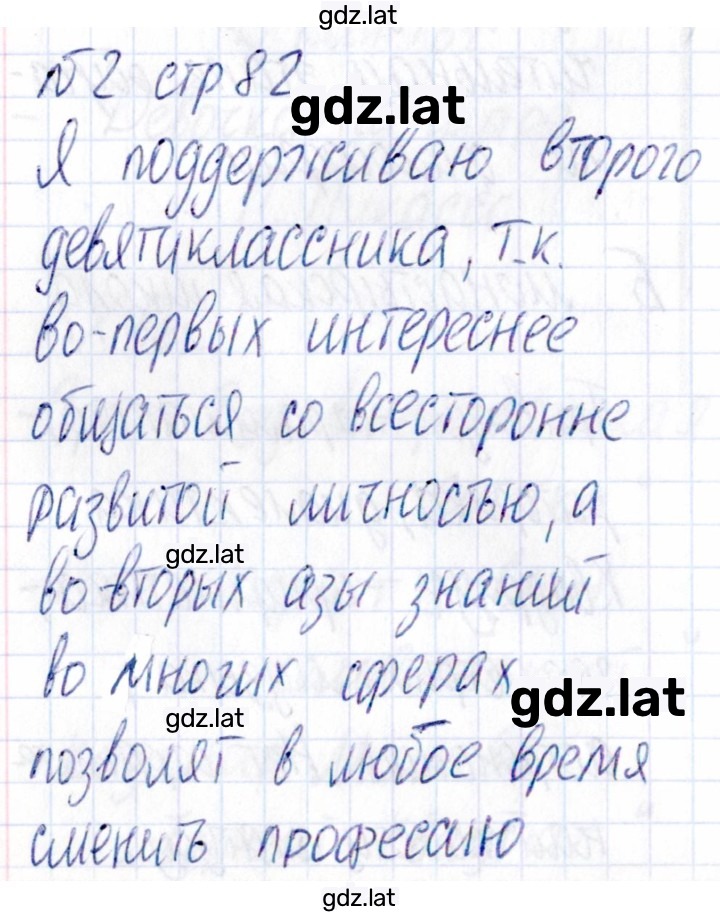 gdz.lat
№2 стр 82
gdz.lat
Я поддерживаю второго
девятиклассника, т.к.
во-первых интереснее
общаться со всесторонне
развитой личностью, а
gdz.lat
во-вторых азы знаний
во многих сферах
gdz.lat
gdz.lat
позволят в любое время
сменить профессию
gdz.lat